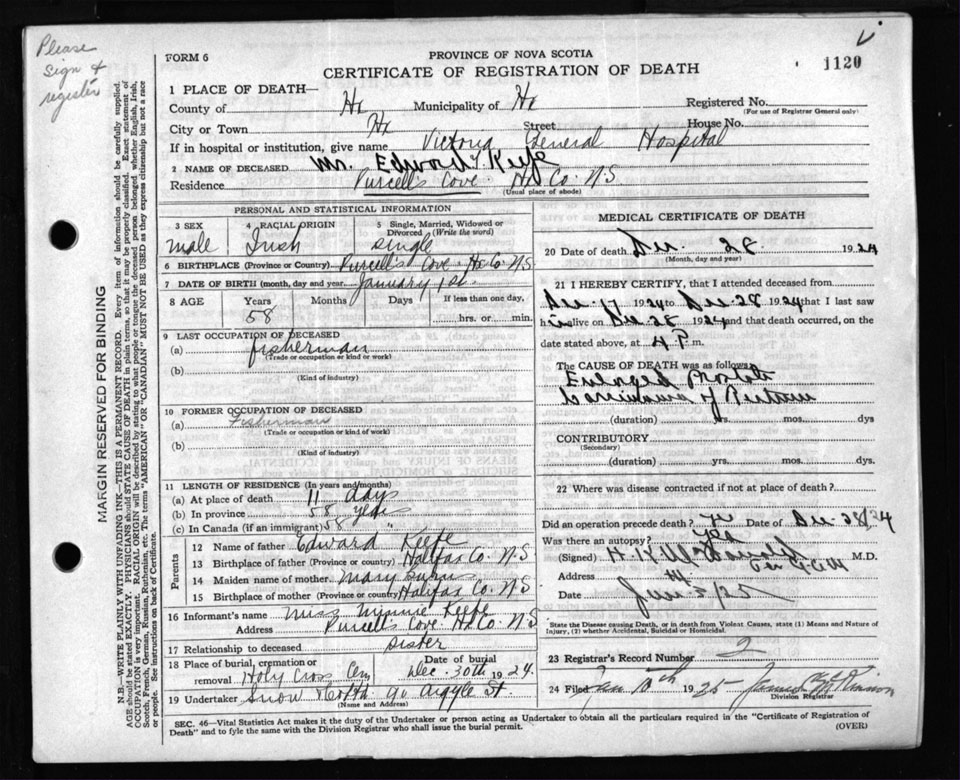 Please
sign &
register
FORM 6
PROVINCE OF NOVA SCOTIA
CERTIFICATE OF REGISTRATION OF DEATH
1120
1 PLACE OF DEATH—
County of Hx Municipality of Hx Registered No.
(For use of Registrar General only)
City or Town Hx Street House No.
If in hospital or institution, give name Victoria General Hospital
2 NAME OF DECEASED Mr. Edward Keefe
Residence Purcell's Cove Hx Co. N.S
(Usual place of abode)
PERSONAL AND STATISTICAL INFORMATION
3 SEX 4 RACIAL ORIGIN 5 Single, Married, Widowed or Divorced (Write the word)
male Irish single
6 BIRTHPLACE (Province or Country) Purcell's Cove Hx Co. N.S
7 DATE OF BIRTH (month, day and year) January 1st
8 AGE Years Months Days If less than one day,
58 hrs. or min.
9 LAST OCCUPATION OF DECEASED
(a) fisherman
(Trade or occupation or kind or work)
(b)
(Kind of industry)
10 FORMER OCCUPATION OF DECEASED
(a) Fisherman
(Trade or occupation or kind of work)
(b)
(Kind of industry)
11 LENGTH OF RESIDENCE (In years and months)
(a) At place of death 11 days
(b) In province 58 years
(c) In Canada (if an immigrant) 58 "
Parents
12 Name of father Edward Keefe
13 Birthplace of father (Province or country) Halifax Co. N.S
14 Maiden name of mother Mary
15 Birthplace of mother (Province or country) Halifax Co. N.S
16 Informant's name Miss Minnie Keefe
Address Purcell's Cove Hx Co. N.S
17 Relationship to deceased sister
18 Place of burial, cremation or removal Holy Cross Cem Date of burial Dec. 30th 1924.
19 Undertaker Snow 90 Argyle St.
(Name and Address)
MEDICAL CERTIFICATE OF DEATH
20 Date of death Dec. 28 1924
(Month, day and year)
21 I HEREBY CERTIFY, that I attended deceased from
Dec. 17 1924 to Dec. 28 1924 that I last saw
him alive on Dec 28 1924 and that death occurred, on the
date stated above, at 4 P. m.
The CAUSE OF DEATH was as follows
Enlarged Prostate
Carcinoma of Rectum
(duration) yrs. mos. dys
CONTRIBUTORY
(Secondary)
(duration) yrs. mos. dys.
22 Where was disease contracted if not at place of death?
Did an operation precede death? Date of Dec. 28/24
Was there an autopsy? Yes
(Signed) H. K. M.D.
Address
Date
State the Disease causing Death, or in death from Violent Causes, state (1) Means and Nature of Injury, (2) whether Accidental, Suicidal or Homicidal.
23 Registrar's Record Number 2
24 Filed Jan 10th 1925 James
Division Registrar
SEC. 46—Vital Statistics Act makes it the duty of the Undertaker or person acting as Undertaker to obtain all the particulars required in the "Certificate of Registration of
Death" and to fyle the same with the Division Registrar who shall issue the burial permit.
(OVER)
MARGIN RESERVED FOR BINDING
N.B.—WRITE PLAINLY WITH UNFADING INK—THIS IS A PERMANENT RECORD. Every item of information should be carefully supplied.
AGE should be stated EXACTLY. PHYSICIANS should STATE CAUSE OF DEATH in plain terms, so that it may be properly classified. Exact statement of
OCCUPATION is very important. RACIAL ORIGIN will be described by stating to what people or tongue the deceased person belonged whether English, Irish,
Scotch, French, German, Russian, Ruthenian, etc. The terms "AMERICAN" OR "CANADIAN" MUST NOT BE USED as they express citizenship but not a race
or people. See instructions on back of Certificate.